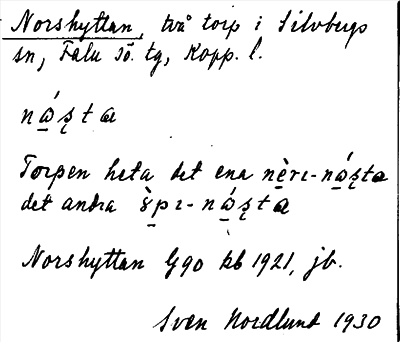 Norshyttan, två torp i Silvbergs
sn, Falu sö. tg, Kopp. l.
nǻ̱ʂtæ
Torpen heta det ena nè̱rɪ-nǻ̱ʂta
det andra ɤ̱̀pɪ-nǻ̱ʂta
Norshyttan G90 kb 1921, jb.
Sven Nordlund 1930